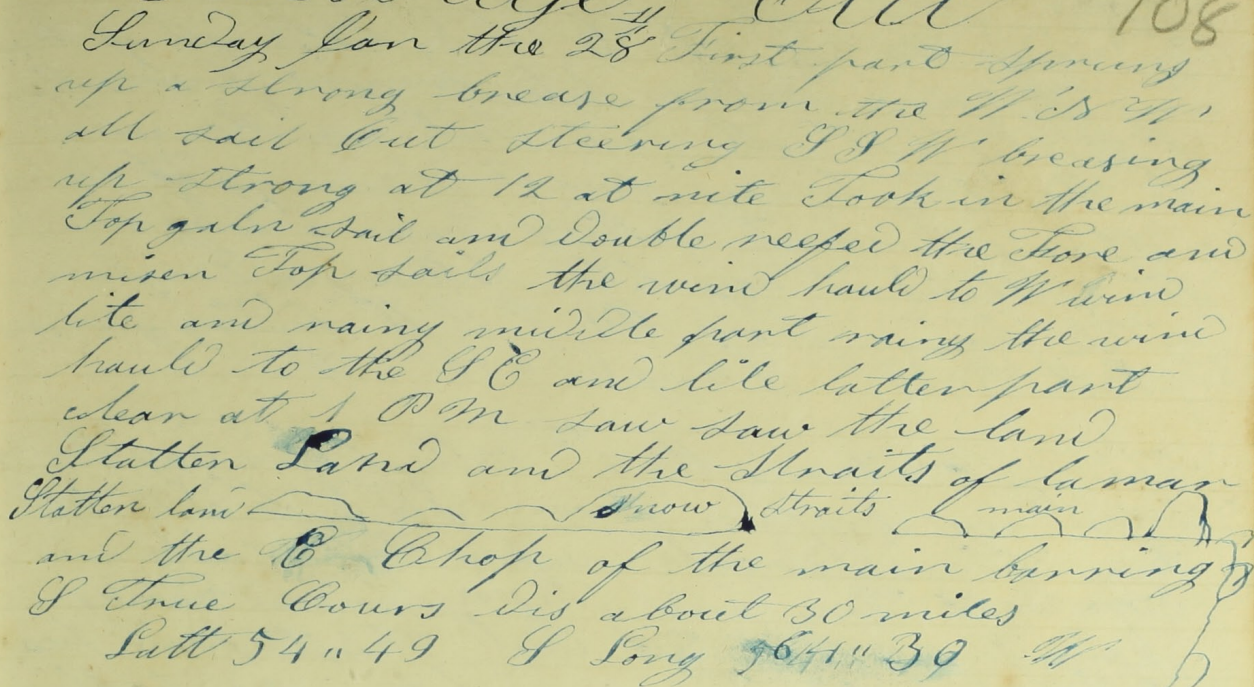 108
Sunday Jan the 28 First part sprung
up a strong brease from the W. N W
all sail Out steering S S W breasing
up strong at 12 at nite Took in the main
Top galn sail and double reefed the Fore and
misen Top sails the wind hauld to W wind
lite and rainy middle part rainy the wind
hauld to the S E and lite latter part
clear at 1 P M saw saw the land
Statten Land and the Straits of lamar
Statten land snow Straits main
and the E Chop of the main barring
S True Cours dis about 30 miles
Latt 54 " 49 S Long 64 " 30 W